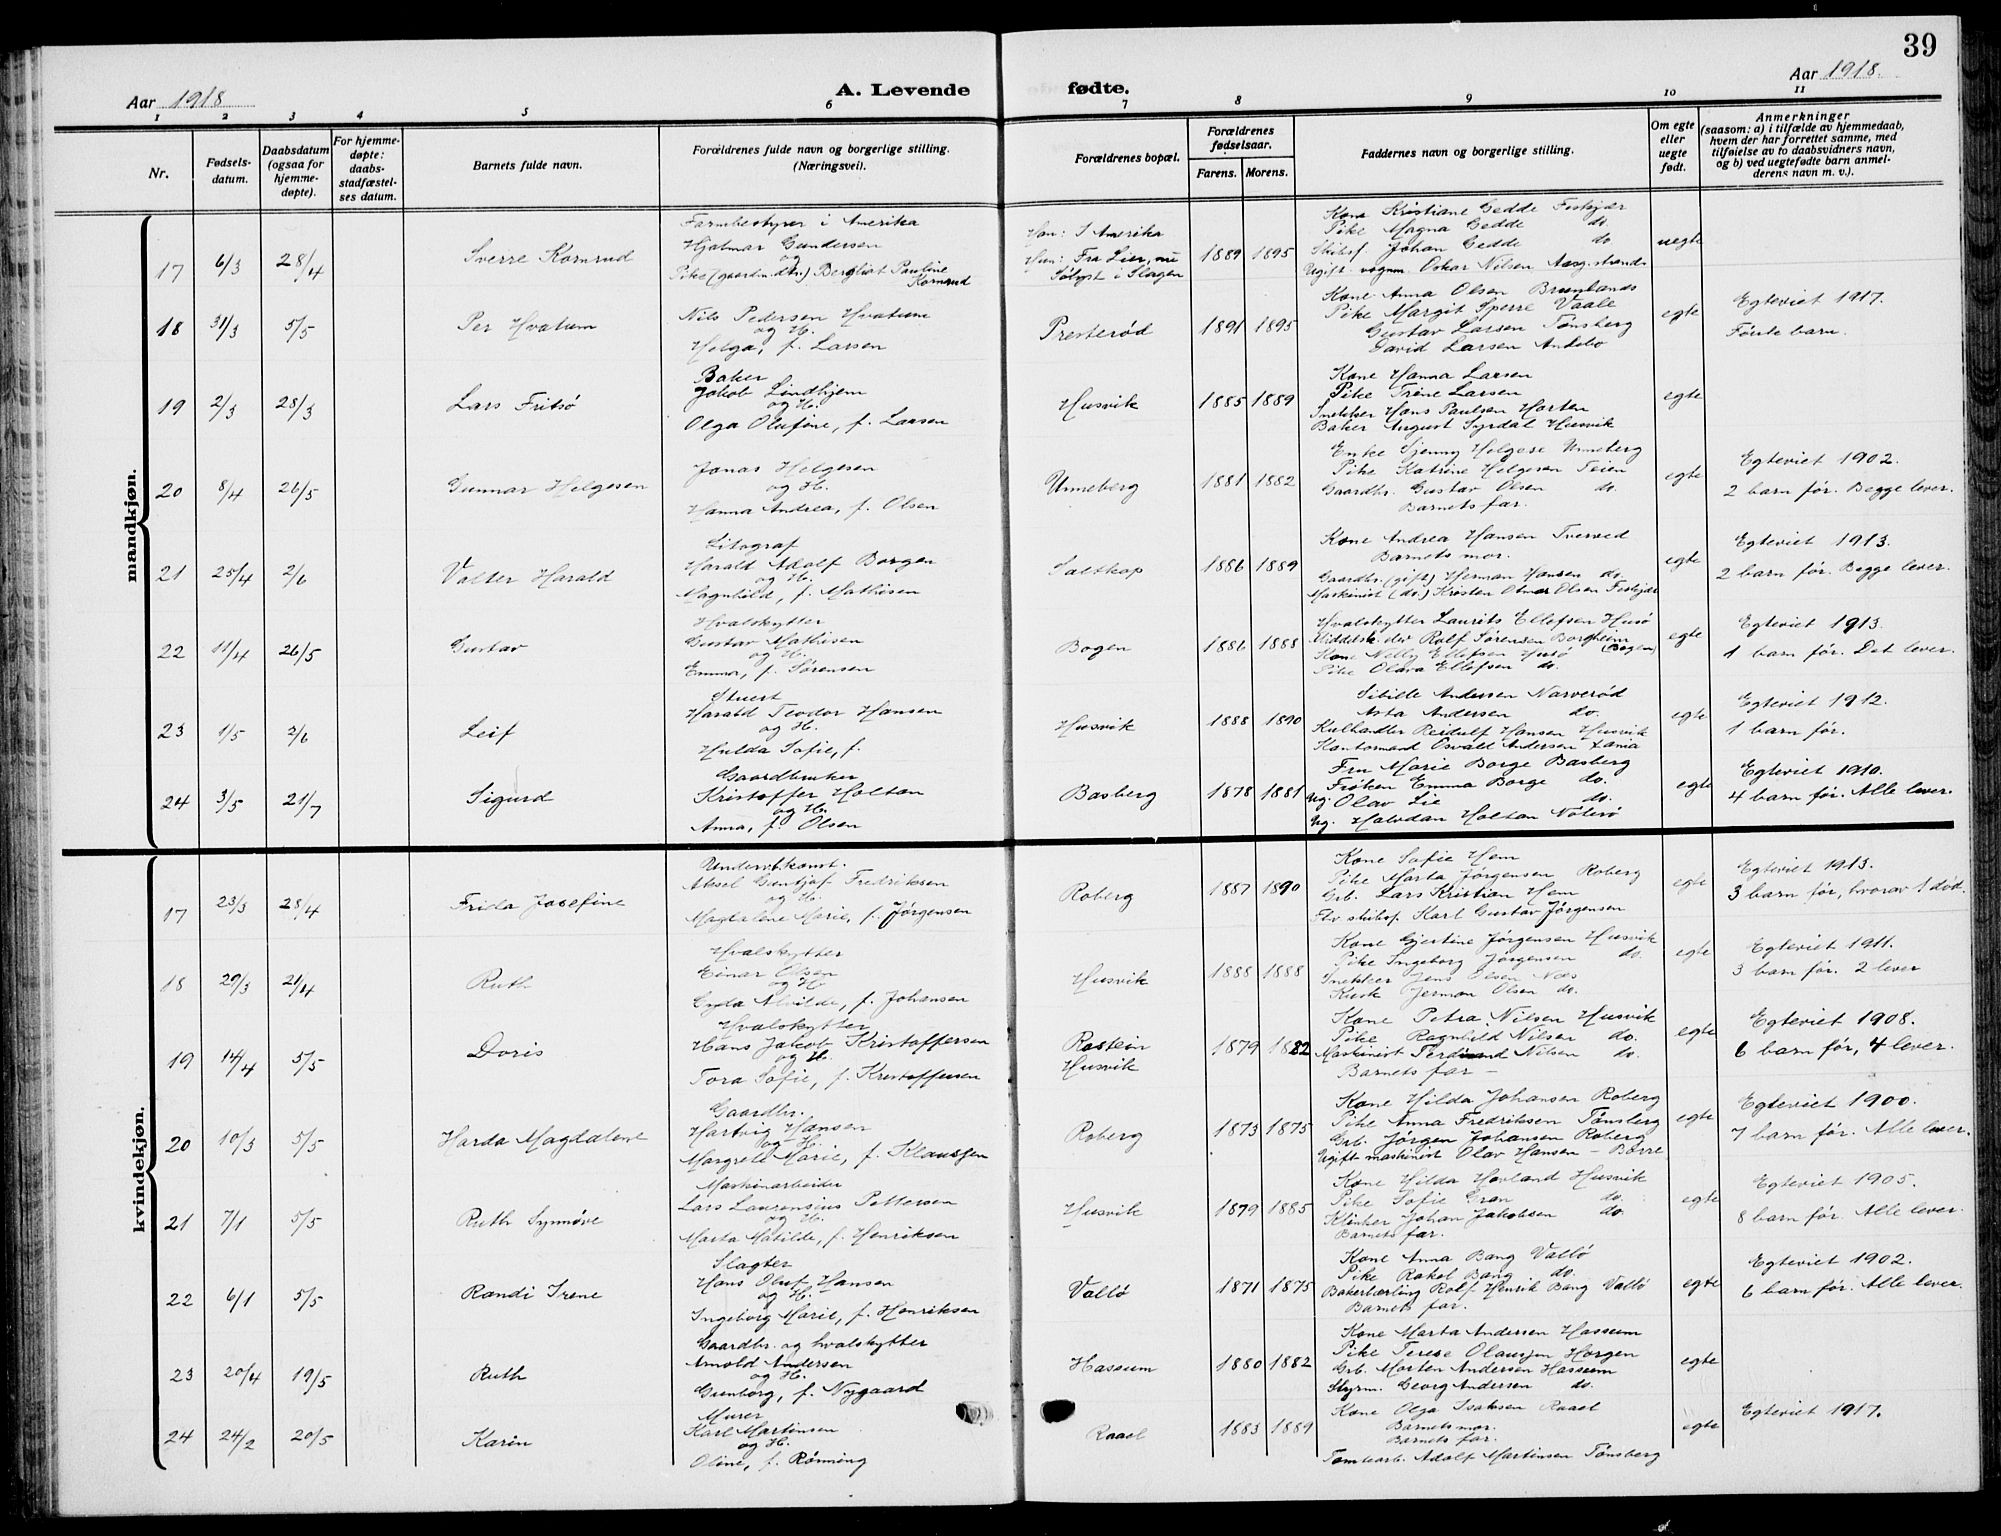 39
Aar 1918
A. Levende
fødte.
Aar 1918.
1 2 3 4 5 6 7 8 9 10 11
Nr.
Fødsels-
datum.
Daabsdatum
(ogsaa for
hjemme-
døpte).
For hjemme-
døpte:
daabs-
stadfæstel-
ses datum.
Barnets fulde navn.
Forældrenes fulde navn og borgerlige stilling.
(Næringsvei).
Forældrenes bopæl.
Forældrenes
fødselsaar.
Farens. Morens.
Faddernes navn og borgerlige stilling.
Om egte
eller
uegte
født.
Anmerkninger
(saasom: a) i tilfælde av hjemmedaab,
hvem der har forrettet samme, med
tilføielse av to daabsvidners navn,
og b) ved uegtefødte barn anmel-
derens navn m. v.).
mandkjøn.
17 6/3 28/4 Sverre Kornrud
Farmbestyrer i Amerika
Hjalmar Gundersen
og
Pike (gaardm.dtr.) Bergliot Pauline
Kornrud
Han: I Amerika
Hun: Fra Lier, nu
Solyst i Slagen
1889 1895
Kone Kristiane Gedde Feskjær
Pike Magna Gedde do.
Skibsf. Johan Gedde do
Ugift vognm. Oskar Nilsen Aasg.strand
uegte
18 31/3 5/5 Per Hvatum
Nils Pedersen Hvatum
og H.
Helga, f. Larsen
Presterød
1891 1895
Kone Anna Olsen Brunlands
Pike Margit Sperre Vaale
Gustav Larsen Tønsberg
David Larsen Andebo
egte
Egteviet 1917.
Første barn.
19 2/3 28/3 Lars Fritsø
Baker
Jakob Lindhjem
og H.
Olga Olufine, f. Larsen
Husvik
1885 1889
Kone Hanna Larsen
Pike Trine Larsen
Snekker Hans Paulsen Horten
Baker August Syrdal Husvik
egte
20 8/4 26/5 Gunnar Helgesen
Jonas Helgesen
og H.
Hanna Andrea, f. Olsen
Unneberg
1881 1882
Enke Sjenny Helgese Unneberg
Pike Katrine Helgesen Teien
Gaardbr. Gustav Olsen do.
Barnets far.
egte
Egteviet 1902.
2 barn før. Begge lever.
21 25/4 2/6 Valter Harald
Litograf
Harald Adolf Borgen
og H.
Magnhild, f. Mathisen
Saltkop
1886 1889
Kone Andrea Hansen Tverved
Barnets mor.
Gaardbr. (gift) Herman Hansen do.
Maskinist (do.) Kristen Olmar Olsen Feskjær
egte
Egteviet 1913.
2 barn før. Begge lever.
22 11/4 26/5 Gustav
Hvalskytter
Gustav Mathisen
og H.
Emma, f. Sørensen
Bogen
1886 1888
Hvalskytter Laurits Ellefsen Husø
Middelsk.elev Rolf Sørensen Borgheim
Kone Nelly Ellefsen Husø (Bogen)
Pike Olava Ellefsen do.
egte
Egteviet 1913.
1 barn før. Det lever.
23 1/5 2/6 Leif
Stuert
Harald Teodor Hansen
og H.
Hulda Sofie, f.
Husvik
1888 1890
Sibille Andersen Narverød
Asta Andersen do.
Kulhandler Reidulf Hansen Husvik
Kontormand Osvald Andersen Xania
egte
Egteviet 1912.
1 barn før.
24 3/5 21/7 Sigurd
Gaardbruker
Kristoffer Holtan
og H.
Anna, f. Olsen
Basberg
1878 1881
Fru Marie Borge Basberg
Frøken Emma Borge do.
Ug. Olav Lie do.
Ug. Halvdan Holtan Nøterø
egte
Egteviet 1910.
4 barn før. Alle lever.
kvindekjøn.
17 23/3 28/4 Frida Josefine
Aksel Fredriksen
og H.
Magdalene Marie, f. Jørgensen
Roberg
1887 1890
Kone Sofie Hem
Pike Marta Jørgensen Roberg
Grb. Lars Kristian Hem
Fhv skibsf. Karl Gustav Jørgensen
egte
Egteviet 1913.
3 barn før, hvorav 1 død.
18 29/3 21/4 Ruth
Hvalskytter
Einar Olsen
og H.
Gyda Alvilde, f. Johansen
Husvik
1888 1888
Kone Gjertine Jørgensen Husvik
Pike Ingeborg Jørgensen do.
Snekker Jens Olsen Næs
Kusk Jerman Olsen do.
egte
Egteviet 1911.
3 barn før. 2 lever
19 14/4 5/5 Doris
Hvalskytter
Hans Jakob Kristoffersen
og H.
Tora Sofie, f. Kristoffersen
Rostein
Husvik
1879 1882
Kone Petra Nilsen Husvik
Pike Ragnhild Nilsen do.
Maskinist Ferdinand Nilsen do.
Barnets far —
egte
Egteviet 1908.
6 barn før, 4 lever.
20 10/3 5/5 Harda Magdalene
Gaardbr.
Hartvig Hansen
og H.
Margrete Marie, f. Klausen
Roberg
1873 1875
Kone Hilda Johansen Roberg
Pike Anna Fredriksen Tønsberg
Grb. Jørgen Johansen Roberg
Ugift maskinist Olav Hansen — Borre
egte
Egteviet 1900.
7 barn før. Alle lever.
21 7/1 5/5 Ruth Synnøve
Maskinarbeider
Lars Laurensius Pettersen
og H.
Marta Matilde, f. Henriksen
Husvik
1879 1885
Kone Hilda Hovland Husvik
Pike Sofie Gran do.
Klinker Johan Jakobsen do.
Barnets far.
egte
Egteviet 1905.
8 barn før. Alle lever.
22 6/1 5/5 Randi Irene
Slagter
Hans Oluf Hansen
og H.
Ingeborg Marie, f. Henriksen
Vallø
1871 1875
Kone Anna Bang Vallø
Pike Rakel Bang do.
Bakerlærling Rolf Henrik Bang Vallø
Barnets far.
egte
Egteviet 1902.
6 barn før. Alle lever.
23 20/4 19/5 Ruth
Gaardbr. og hvalskytter
Arnold Andersen
og H.
Gunborg, f. Nygaard
Hassum
1880 1882
Kone Marta Andersen Hassum
Pike Terese Olaussen Horgen
Grb. Morten Andersen Hassum
Styrm. Georg Andersen do.
egte
24 24/2 20/5 Karin
Murer
Karl Martinsen
og H.
Oline, f. Rønning
Raael
1883 1889
Kone Olga Isaksen Raael
Barnets mor.
Barnets far.
Tomtearb. Adolf Martinsen Tønsberg
egte
Egteviet 1917.